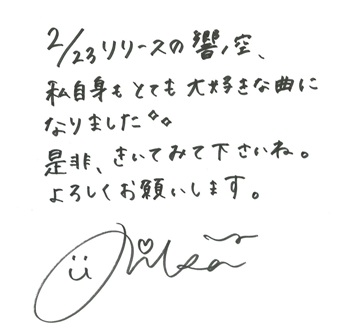 2/23リリースの響ノ空、
私自身もとても大好きな曲に
なりました
是非、きいてみて下さいね。
よろしくお願いします。